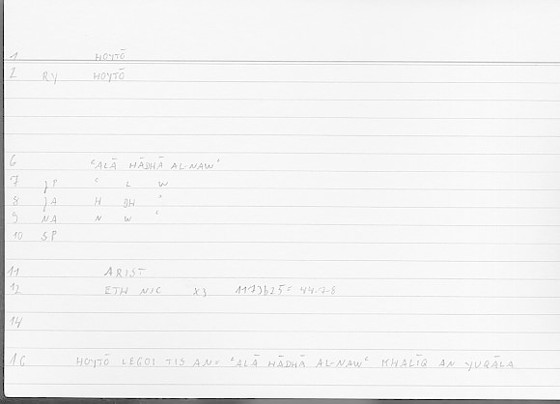 1 HOYTŌ
2 RY HOYTŌ
6 ʿALĀ HĀDHĀ AL-NAWʿ
7 JP ʿ L W
8 JA H DH ʾ
9 NA N W ʿ
10 SP
11 ARIST
12 ETH NIC XJ 1179b25= 44.7-8
14
16 HOYTŌ LEGOI TIS AN= ʿALĀ HĀDHĀ AL-NAWʿ KHALĪQ AN YUQĀLA